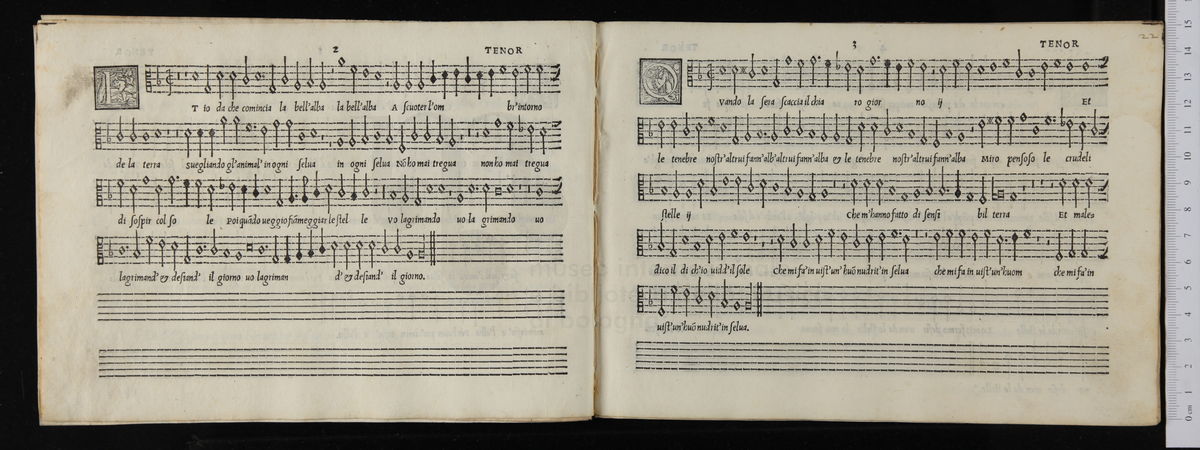 2 TENOR
ET io da che comincia la bell'alba la bell'alba A scuoter l'om br'intorno
de la terra suegliando gl'animal' in ogni selua in ogni selua Nō ho mai tregua non ho mai tregua
di sospir col so le Poi quādo ueggio fiāmeggiar le stel le vo lagrimando uo la grimando uo
lagrimand' & desiand' il giorno uo lagriman d' & desiand' il giorno.
3 TENOR
22
QVando la sera scaccia il chia ro gior no ij Et
le tenebre nostr' altrui fann' alb' altrui fann' alba & le tenebre nostr' altrui fann' alba Miro pensoso le crudeli
stelle ij Che m'hanno fatto di sensi bil terra Et male=
dico il di ch'io uidd' il sole che mi fa in uist' un' huō nudrit' in selua che mi fa in uist' un' huom che mi fa' in
uist' un' huō nudrit' in selua.
museo
0 cm 1 2 3 4 5 6 7 8 9 10 11 12 13 14 15